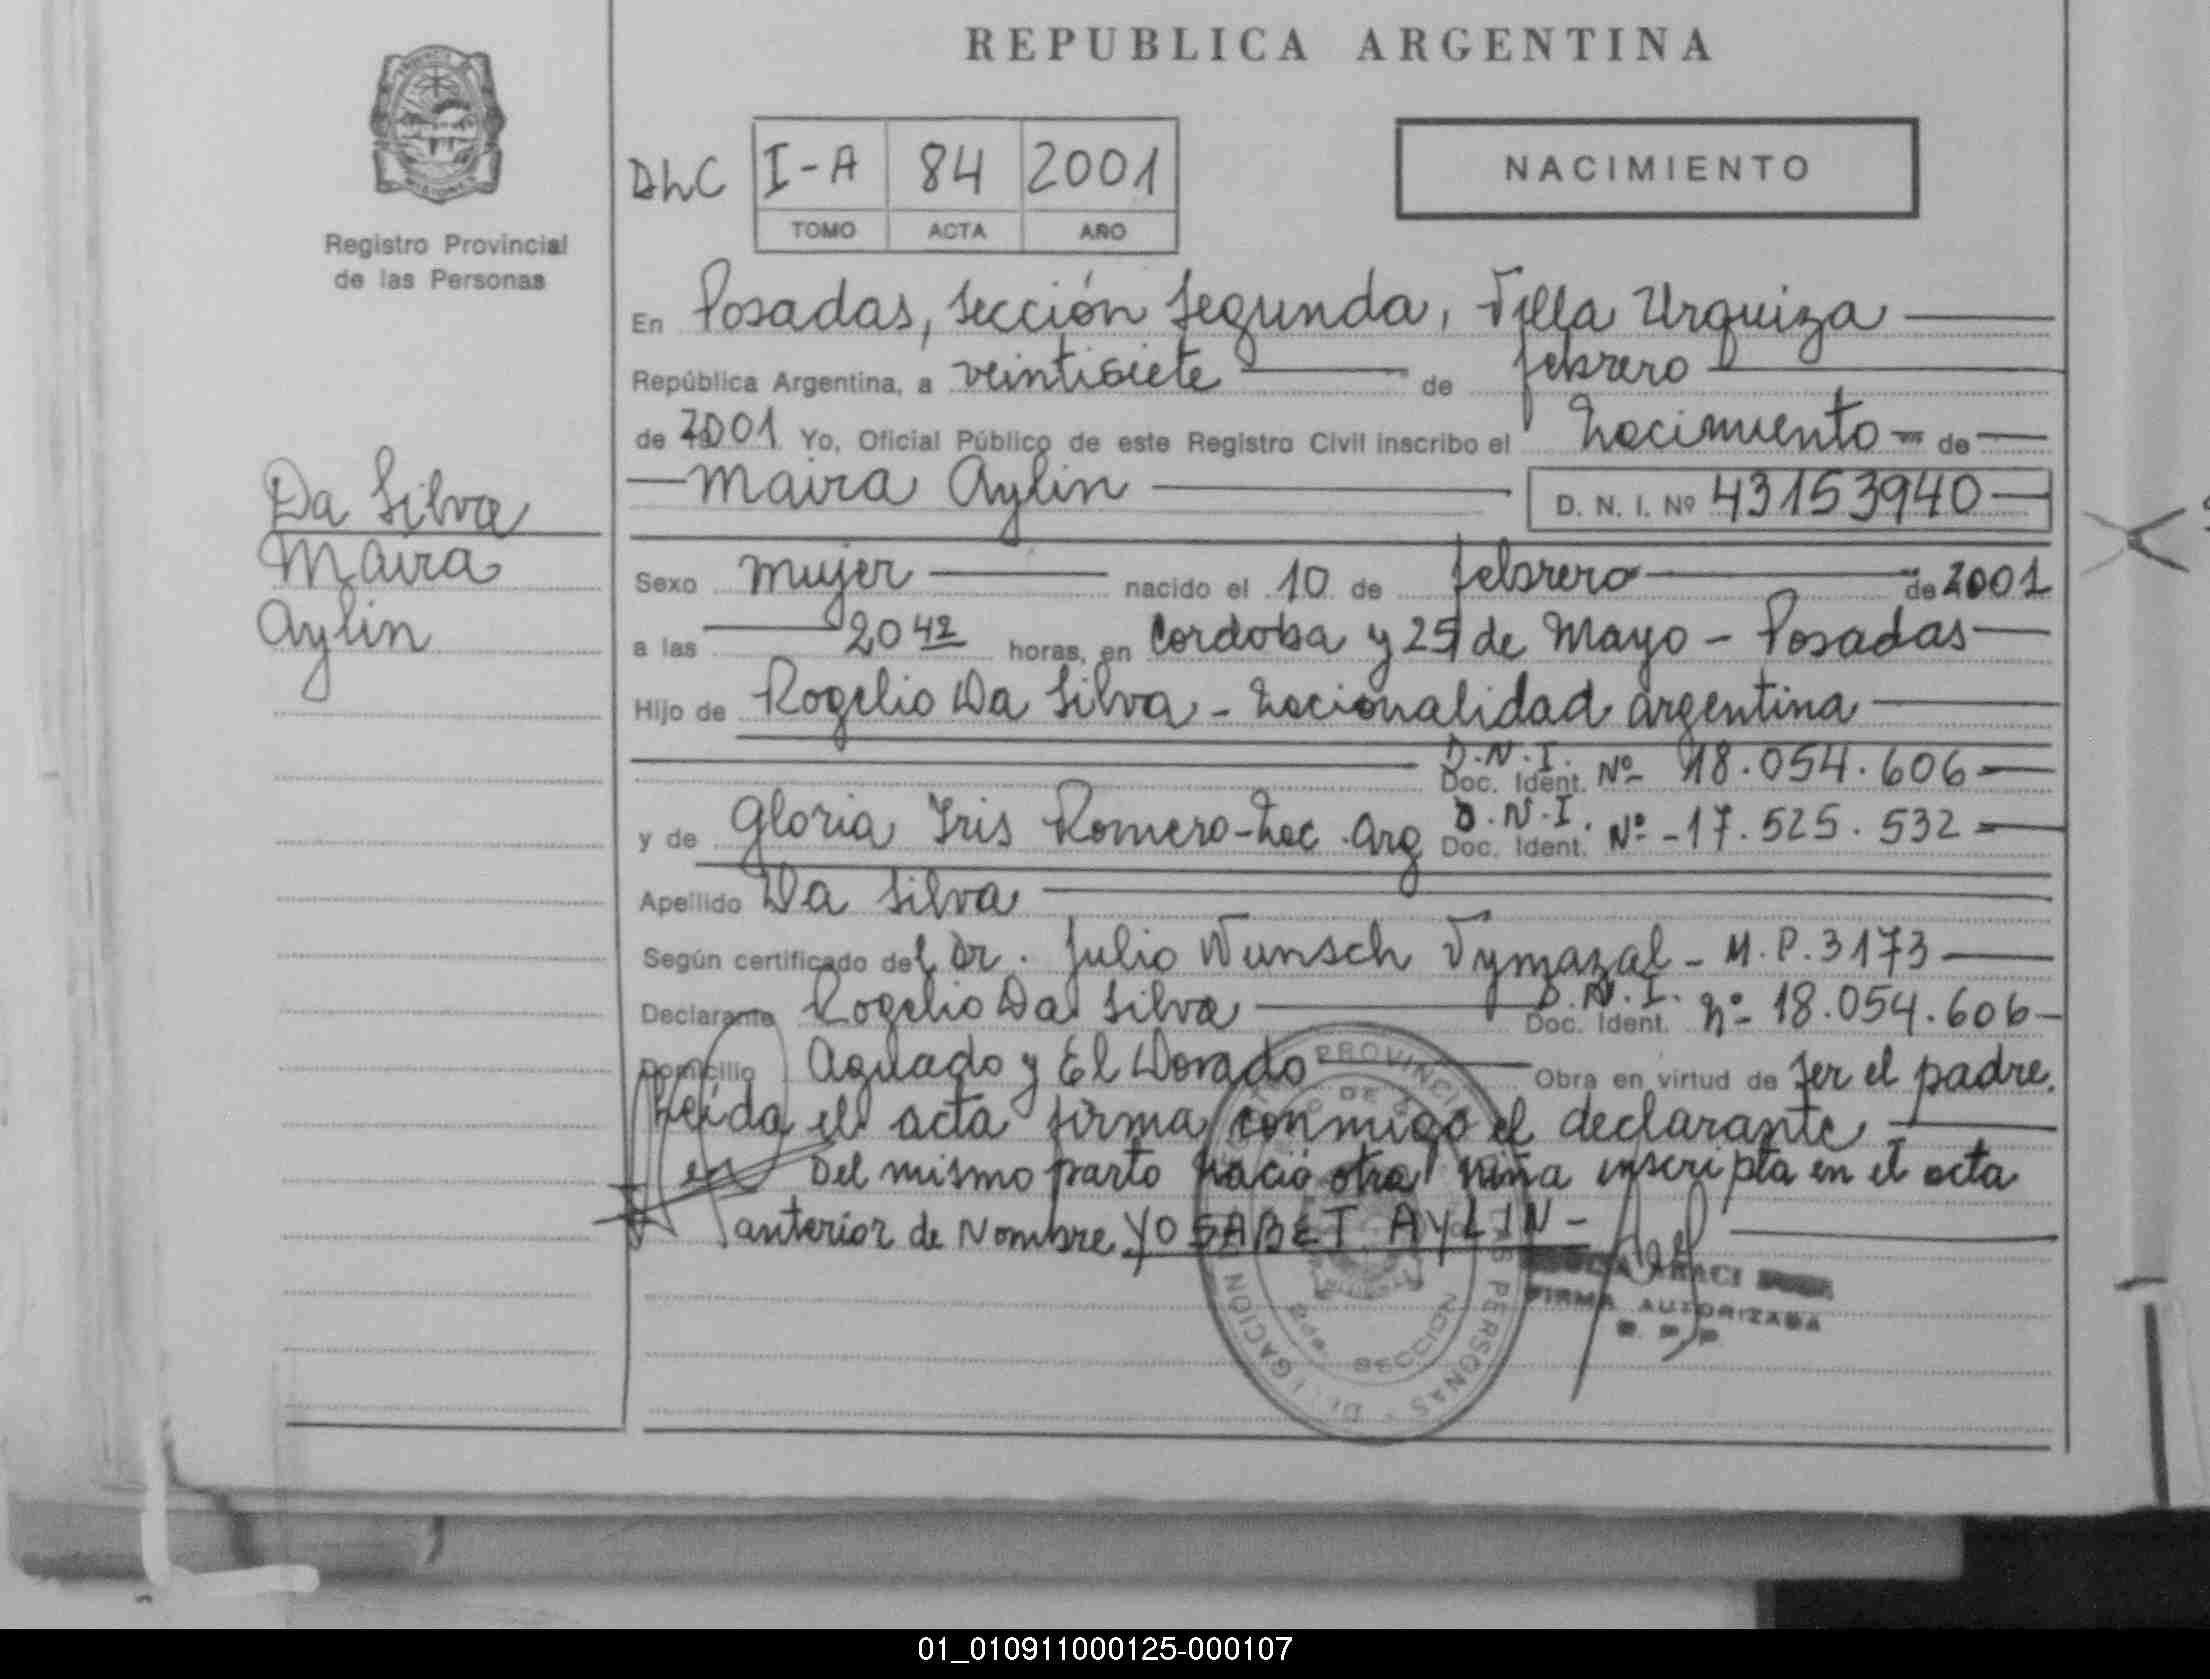 REPUBLICA ARGENTINA
NACIMIENTO
DLC I-A 84 2001
TOMO ACTA AÑO
Registro Provincial
de las Personas
En Posadas, Sección Segunda, Villa Urquiza
República Argentina, a veintisiete de febrero
de 2001 Yo, Oficial Público de este Registro Civil inscribo el Nacimiento de
Maira Aylin D. N. I. Nº 43153940
Da Silva
Maira
Aylin
Sexo mujer nacido el 10 de febrero de 2001
a las 20 42 horas, en Cordoba y 25 de Mayo - Posadas
Hijo de Rogelio Da Silva - Nacionalidad argentina
D.N.I.
Doc. Ident. Nº 18.054.606
D.N.I.
y de Gloria Iris Romero - Nac. Arg Doc. Ident. Nº - 17.525.532
Apellido Da Silva
Según certificado del Dr. Julio Wunsch Vymazal - M.P. 3173
D.N.I.
Declarante Rogelio Da Silva Doc. Ident. Nº 18.054.606
Domicilio Aguado y El Dorado Obra en virtud de ser el padre.
Leída el acta firma conmigo el declarante
Del mismo parto nació otra niña inscripta en el acta
anterior de Nombre YOSABET AYLIN -
FIRMA AUTORIZADA
01_010911000125-000107